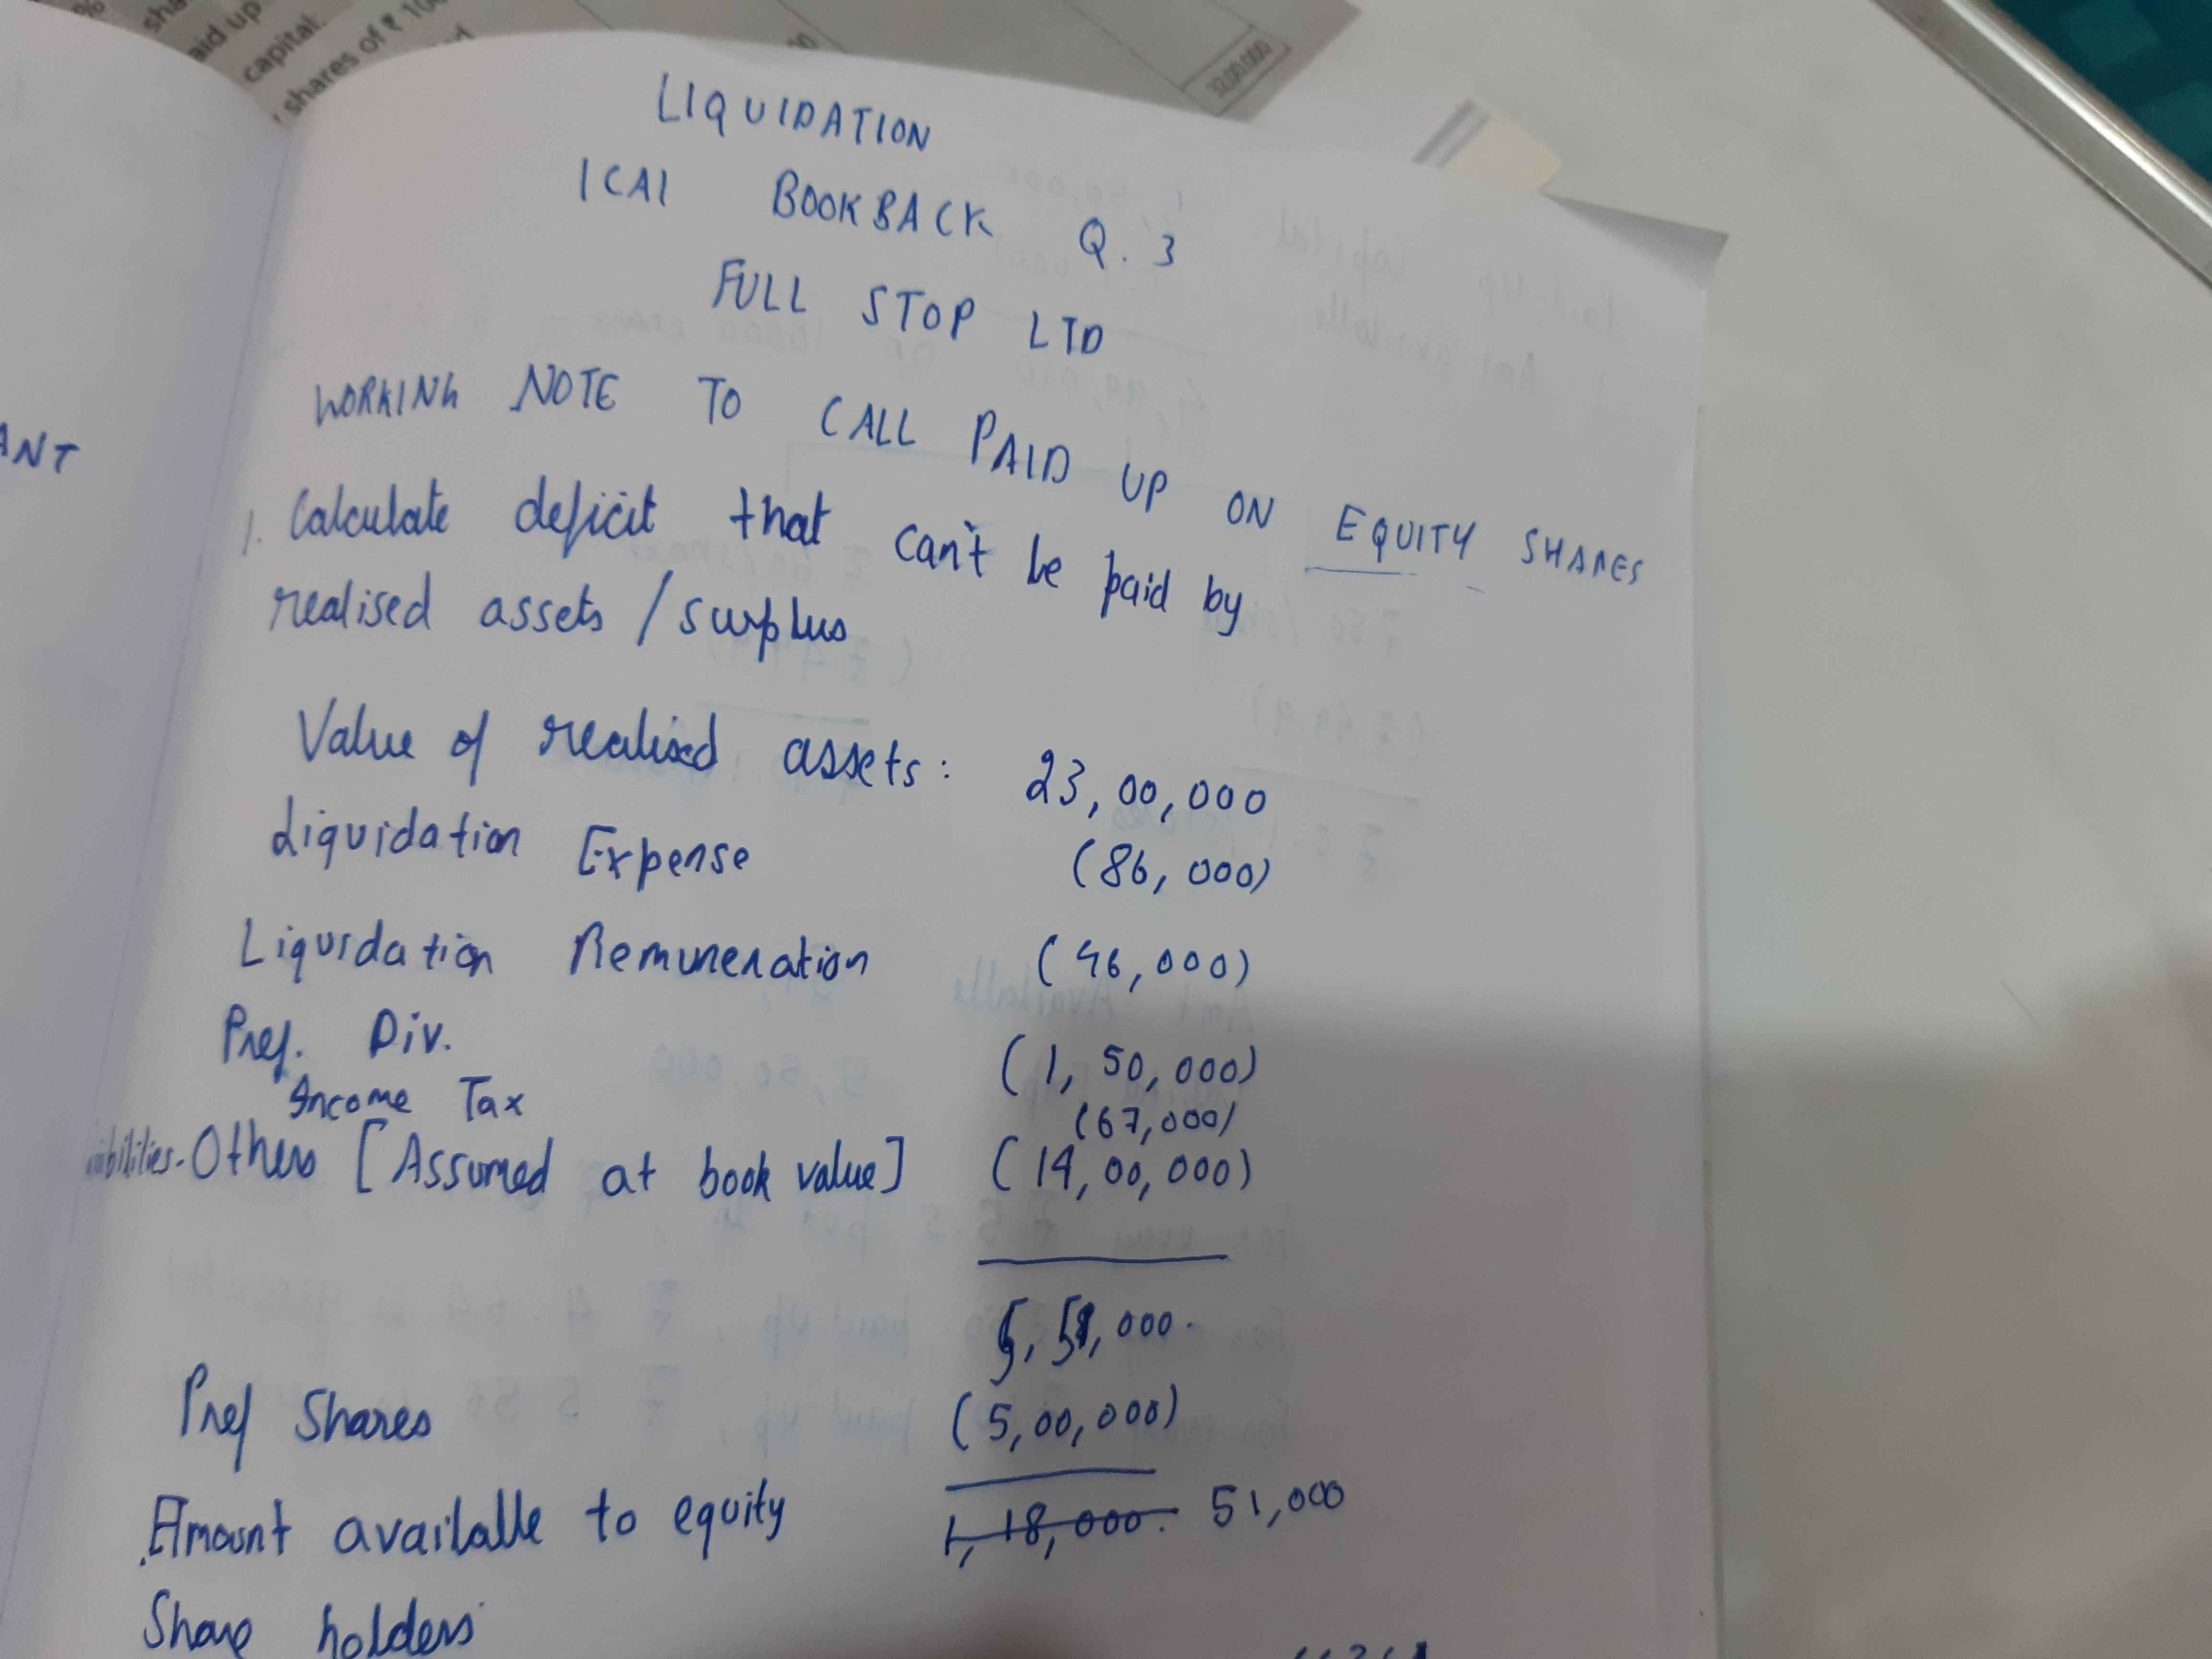 sha
aid up
capital.
shares of ₹ 10
32,00,000
LIQUIDATION
ICAI BOOKBACK Q. 3
FULL STOP LTD
WORKING NOTE TO CALL PAID UP ON EQUITY SHARES
ANT
1. Calculate deficit that can't be paid by
realised assets / surplus
Value of realised assets: 23,00,000
Liquidation Expense (86,000)
Liquidation Remuneration (46,000)
Pref. Div. (1,50,000)
Income Tax (67,000)
Others [Assumed at book value] (14,00,000)
5,51,000.
Pref Shares (5,00,000)
Amount available to equity 1,18,000. 51,000
Share holders